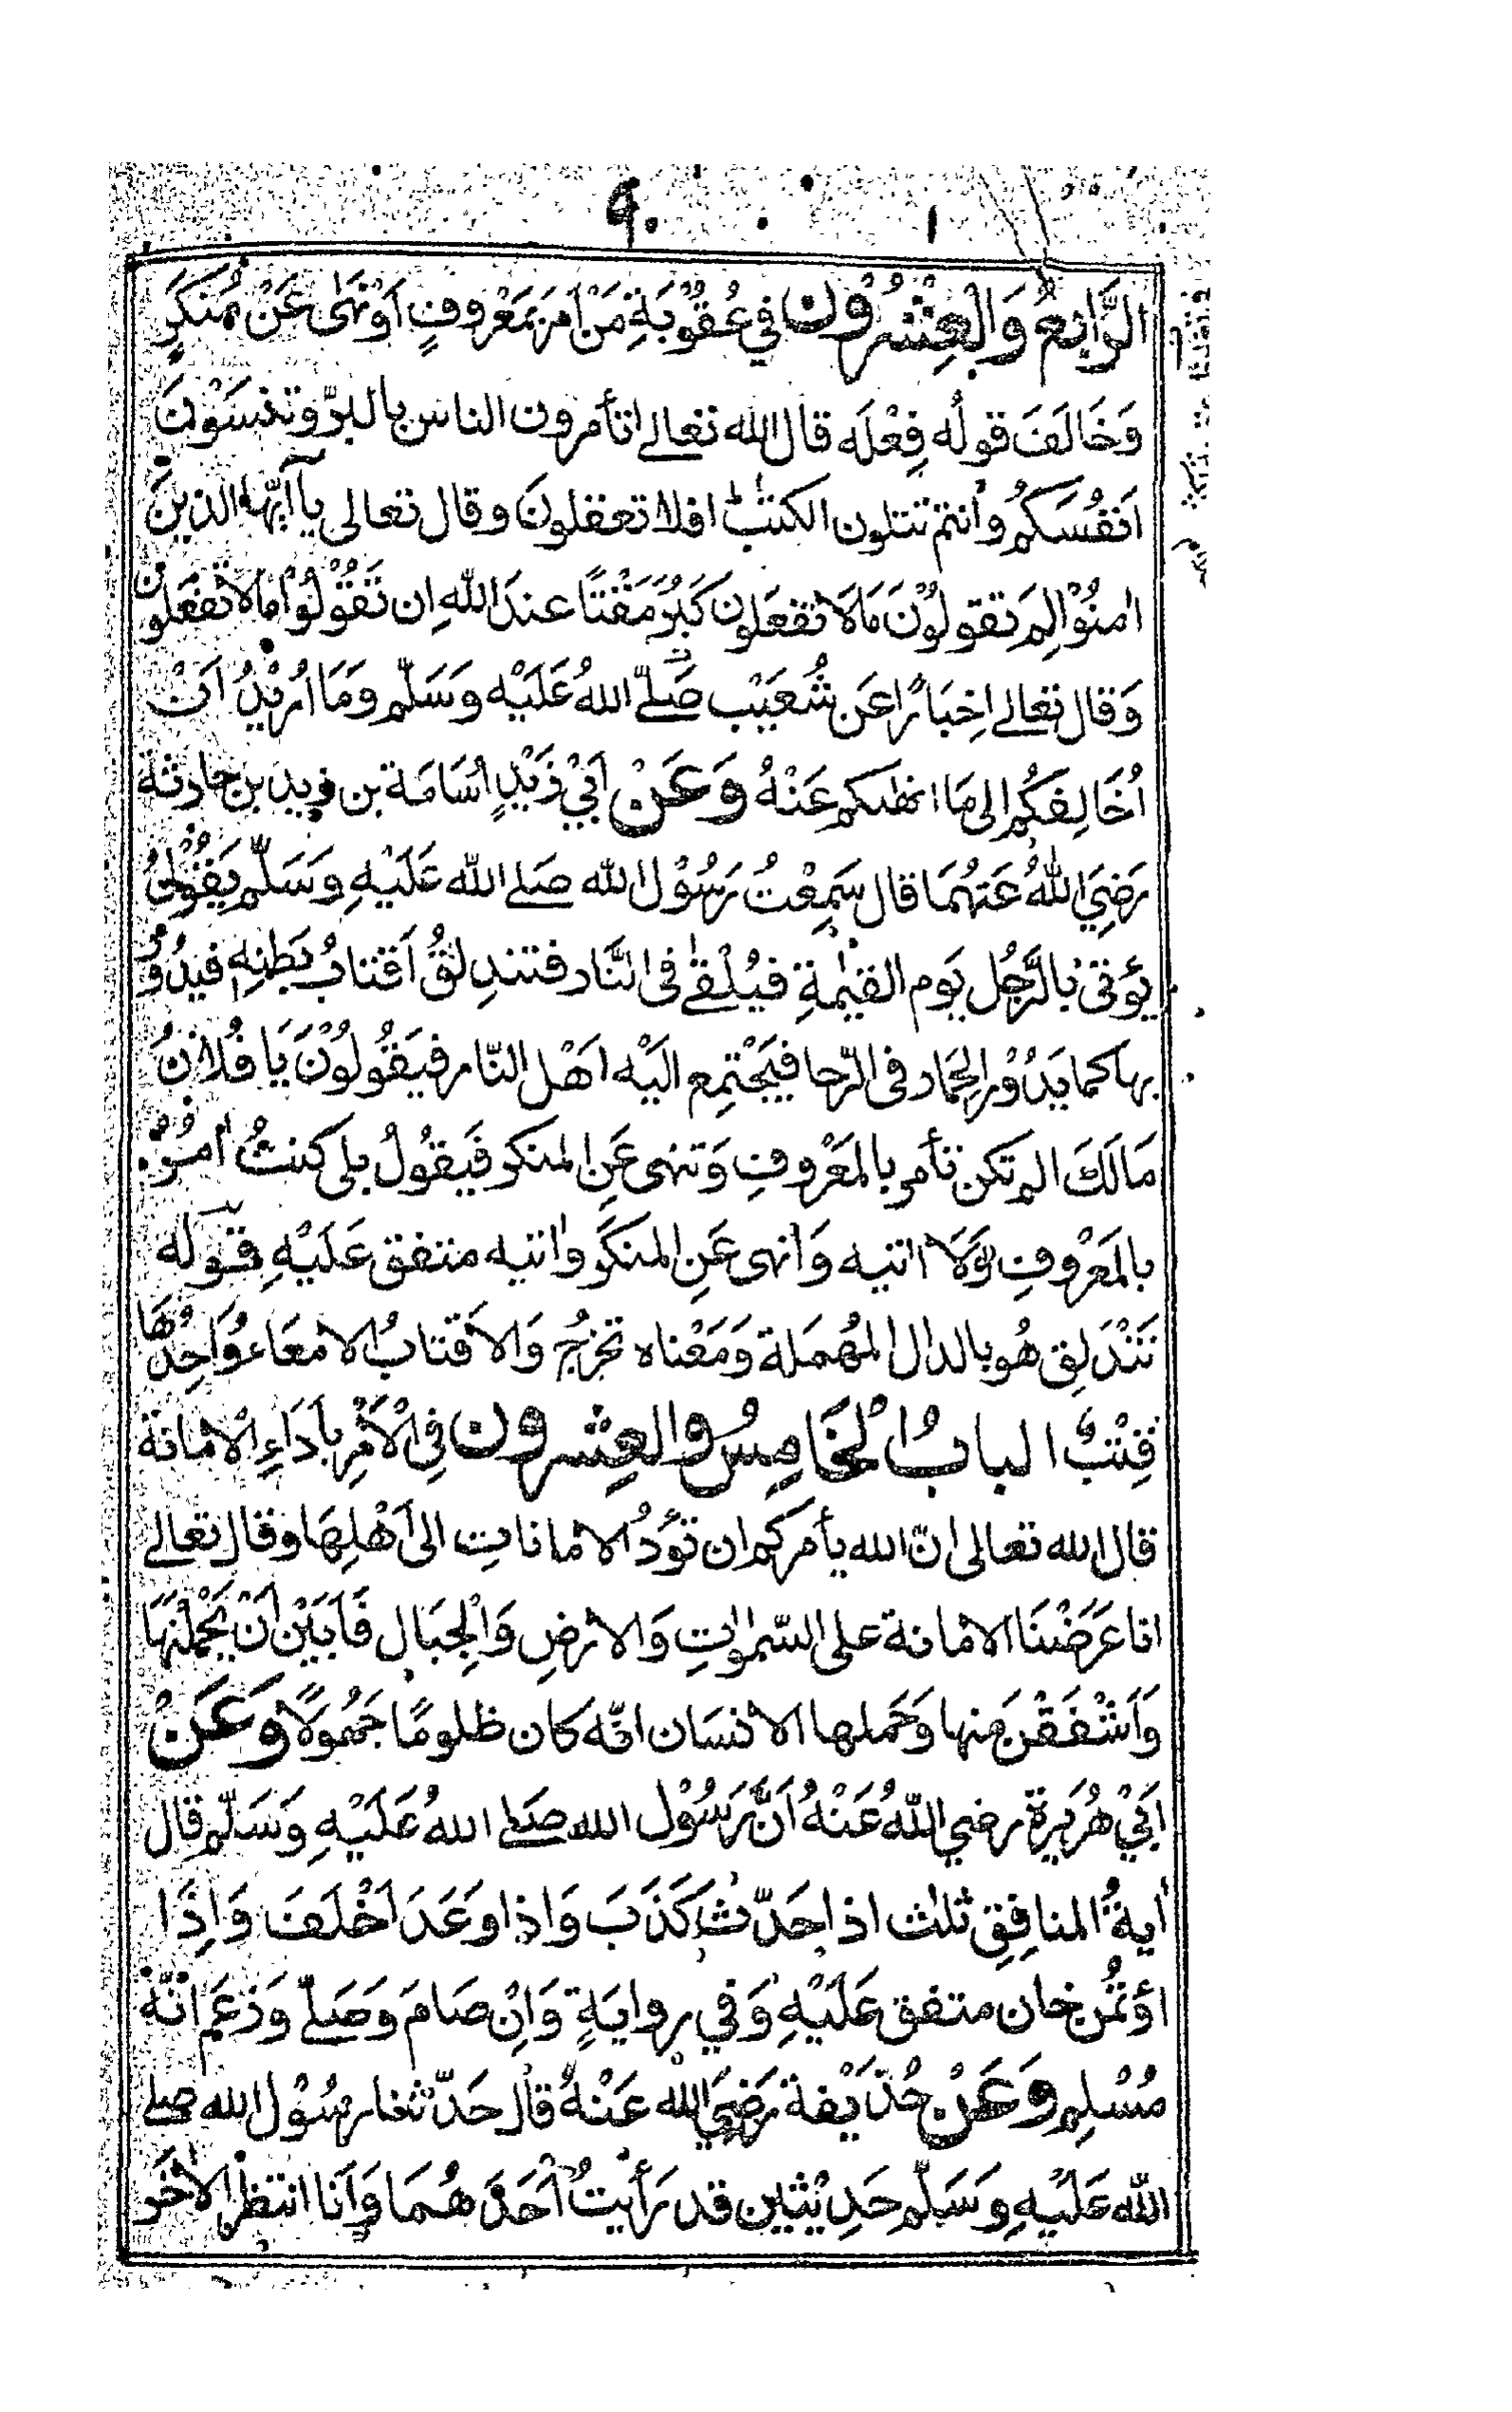 ٩٠
الرَّابِعُ وَالْعِشْرُوْن فِي عُقُوْبَةِ مَنْ اَمَرَ بِمَعْرُوفٍ اَوْ نَهٰى عَنْ مُنْكَرٍ
وَخَالَفَ قولُه فِعْلَه قال الله تعالے اتأمرون الناس بالبرّ وتنسَوْنَ
اَنفُسَكُمْ وأنتم تتلون الكتٰب افلا تعقلونَ وقال تعالى يآ ايّها الذينَ
اٰمنُوْا لِمَ تقولُوْنَ مَا لَا تفعَلون كَبُرَ مَقْتًا عندَ اللهِ اِن تَقُوْلُوْا مَا لَا تفعَلون
وَقال تعالے اِخبَارًا عَن شُعَيْب صَلّے اللهُ عَلَيْه وَسَلّم وَمَا اُرِيْدُ اَنْ
اُخَالِفَكُمْ الى مَا انهٰىكم عَنْهُ وَعَنْ اَبِيْ زَيْدٍ اُسَامَة بن زيد بن حارثة
رَضِيَ اللهُ عَنهُمَا قال سَمِعْتُ رَسُوْل الله صَلے الله عَلَيْهِ وَسَلّم يَقُوْلُ
يؤتى بالرَّجُل يَوم القيٰمةِ فيُلْقٰے فى النَّار فتندلقُ اَقتابُ بَطنِهِ فيدُوْرُ
بها كما يَدُوْر الحِمَار فى الرّحا فيَجْتمِع اليَْه اَهْل النّار فيَقُولُوْنَ يَا فُلانُ
مَالَكَ الم تكن تأمر بالمَعْروفِ وَتنهى عَنِ المنكر فَيقُولُ بلى كنتُ اٰمُرُ
بالمَعْروفِ وَلَا اٰتيه وَانهى عَنِ المنكَر واٰتيه متفق عَلَيْهِ قوله
تَنْدَلِق هُو بالدال المُهمَلة وَمَعْناه تخرُج وَالاَقتابُ الامعَاء وَاحِدُهَا
قِتْبٌ البابُ الخَامِسُ والعِشرون فِى الْاَمْرِ بِاَدَاءِ الْامَانة
قال الله تعالى انّ الله يأمركم ان تؤدُّ الامانات الى اَهْلِهَا وقال تعالے
انا عَرَضْنَا الامَانة على السّمٰوٰتِ وَالارضِ وَالجِبَال فَاَبَيْنَ اَنْ يَحْمِلْنَهَا
وَاَشْفَقْنَ مِنها وَحَملها الانسَان انّه كان ظلومًا جَهُولًا وَعَنْ
اَبِيْ هُرَيرة رضي اللهُ عَنْهُ اَنَّ رَسُوْل الله صَلے اللهُ عَلَيْهِ وَسَلّم قال
اٰيةُ المنافِقِ ثلٰث اذا حَدّث كَذَبَ وَاذا وعَدَ اَخْلَفَ وَاِذَا
اؤتُمن خان متفق عَلَيْهِ وَفي روايَةٍ وَاِنْ صَامَ وَصَلّے وَزعَم انّهُ
مُسْلِم وعَنْ حُذَيْفة رَضِيَ الله عَنْهُ قال حَدّثنا رسُوْل الله صلے
الله عَلَيْهِ وَسَلّم حَدِيْثين قد رَأيتُ اَحَدَهُمَا وَاَنا انتظر الاٰخَر